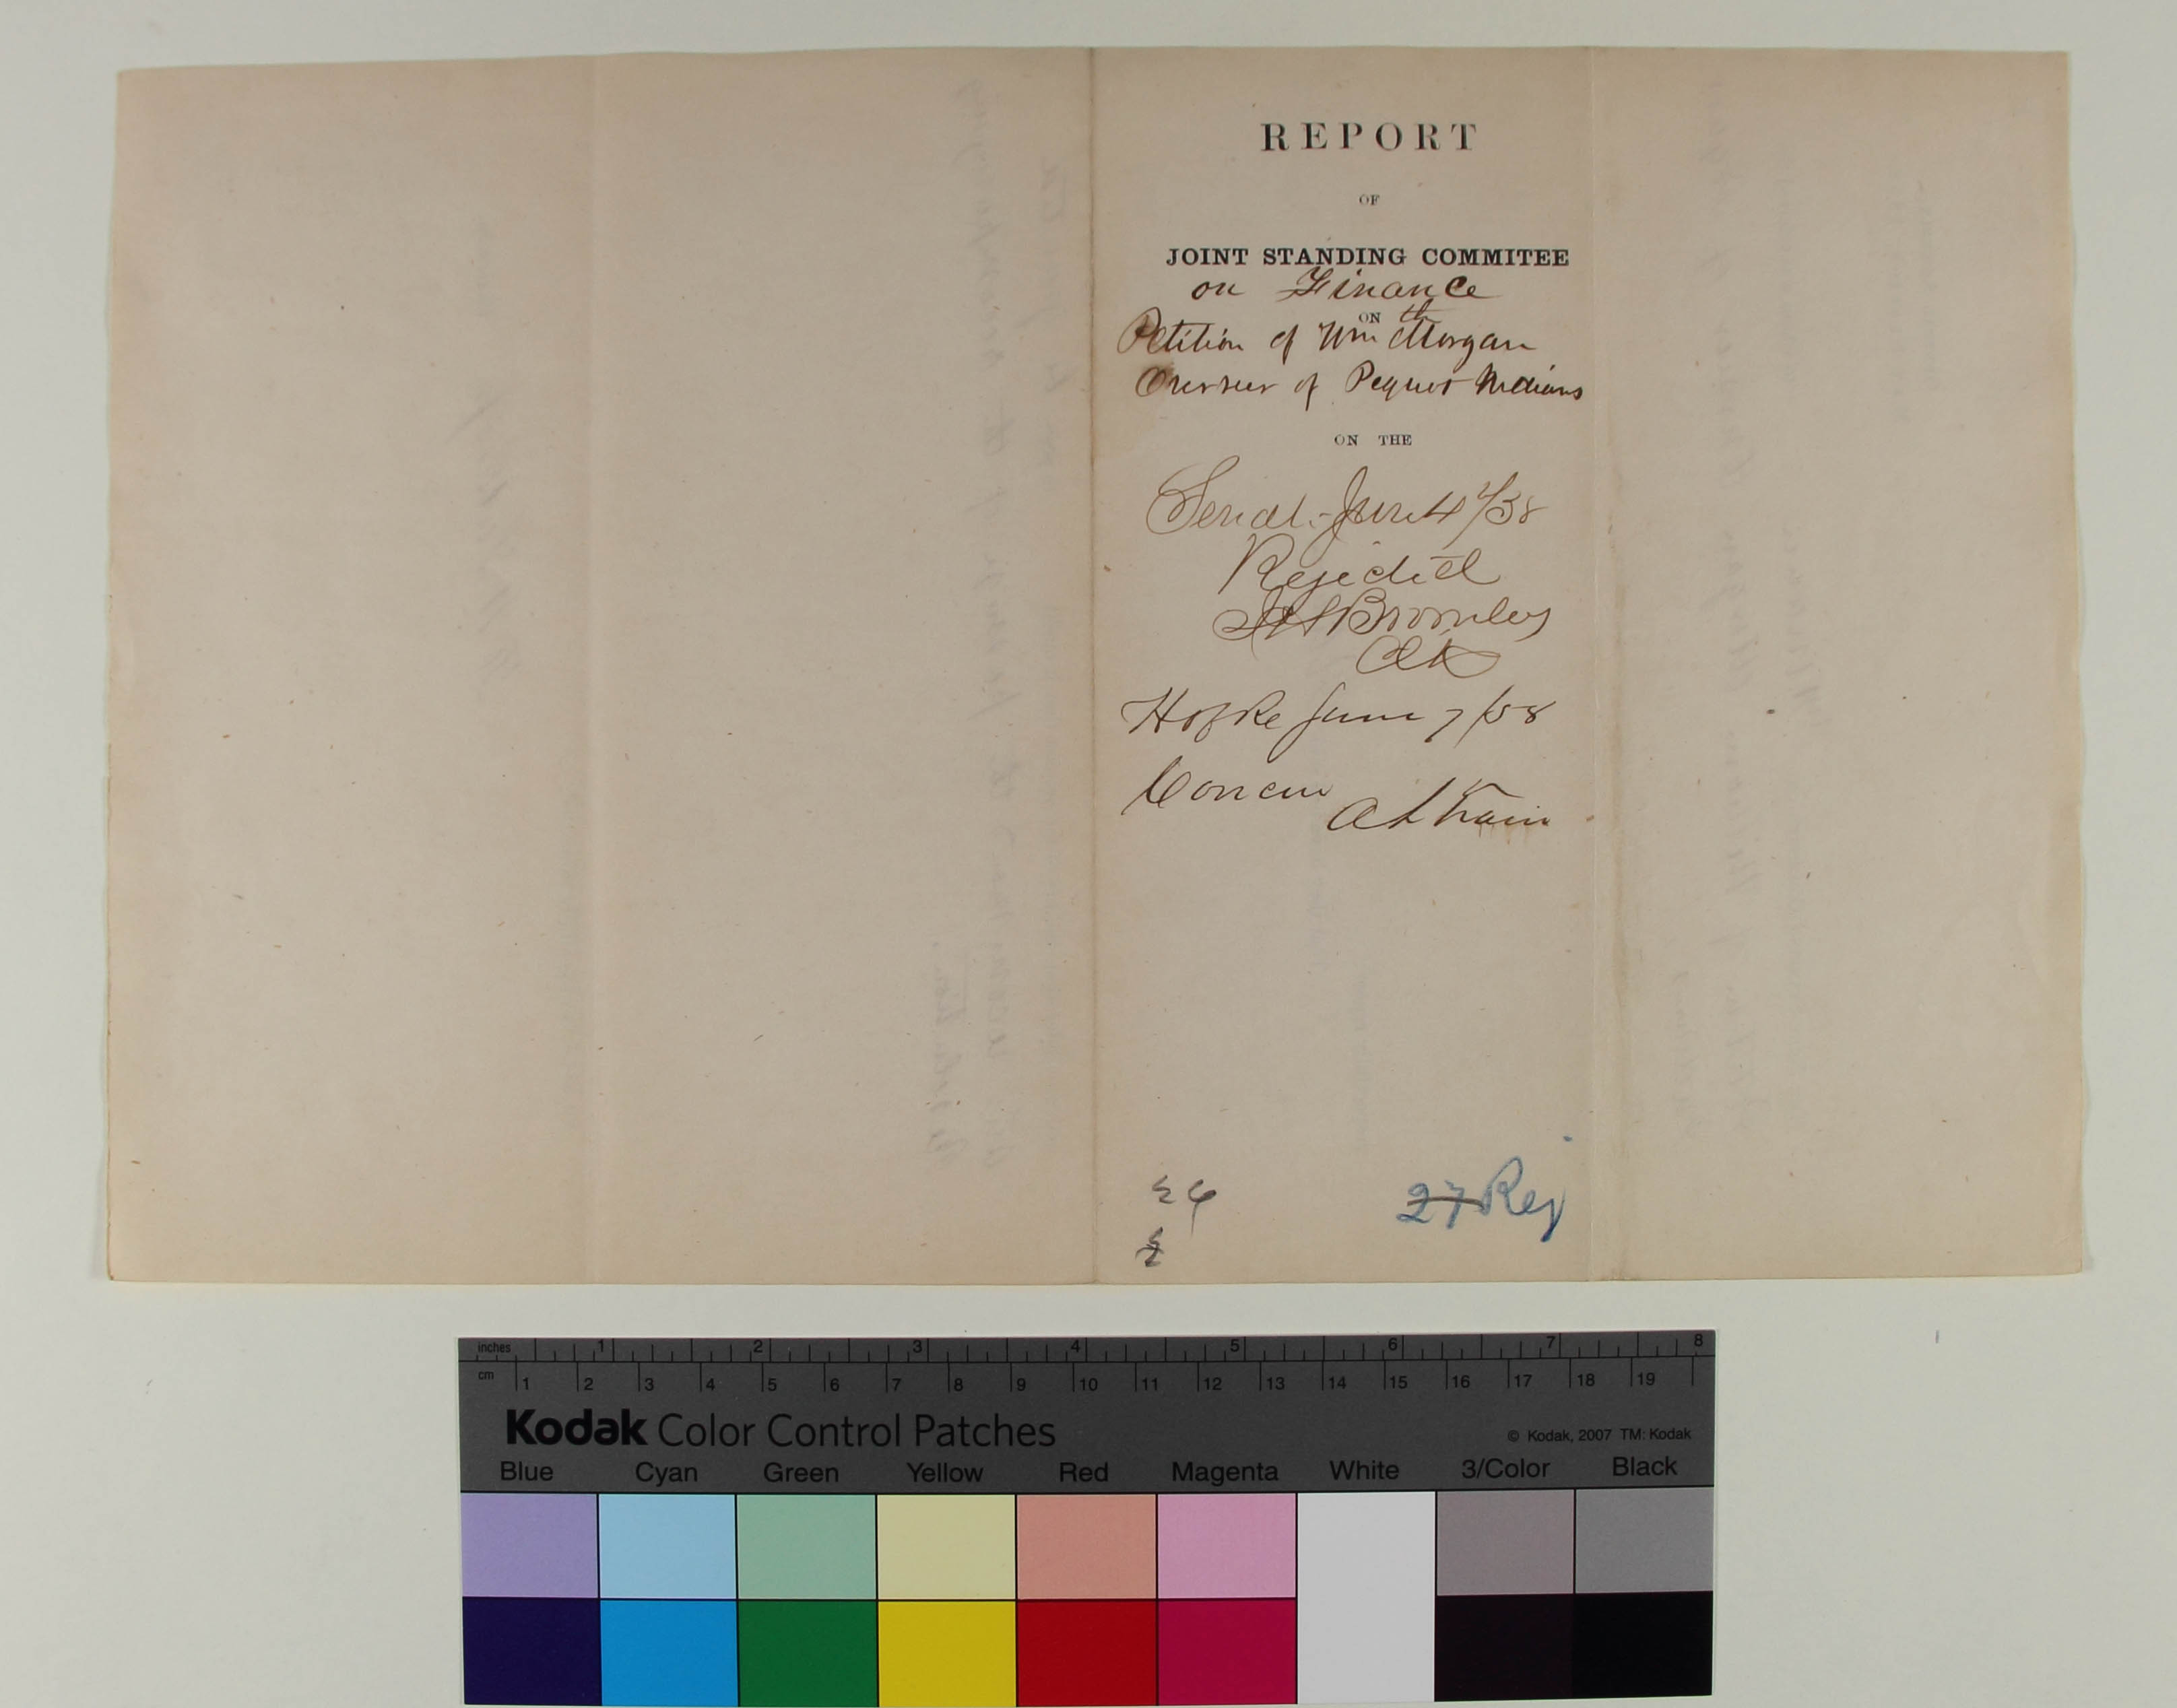 REPORT
OF
JOINT STANDING COMMITEE
on Finance
ON the
Petition of Wm Morgan
Overseer of Pequot Indians
ON THE
Senate June 4/58
Rejected
Bromley
Clk
Hof Re June 7/58
Concur
A L Train
24
27 Rej
inches 1 2 3 4 5 6 7 8
cm 1 2 3 4 5 6 7 8 9 10 11 12 13 14 15 16 17 18 19
Kodak Color Control Patches
© Kodak, 2007 TM: Kodak
Blue Cyan Green Yellow Red Magenta White 3/Color Black